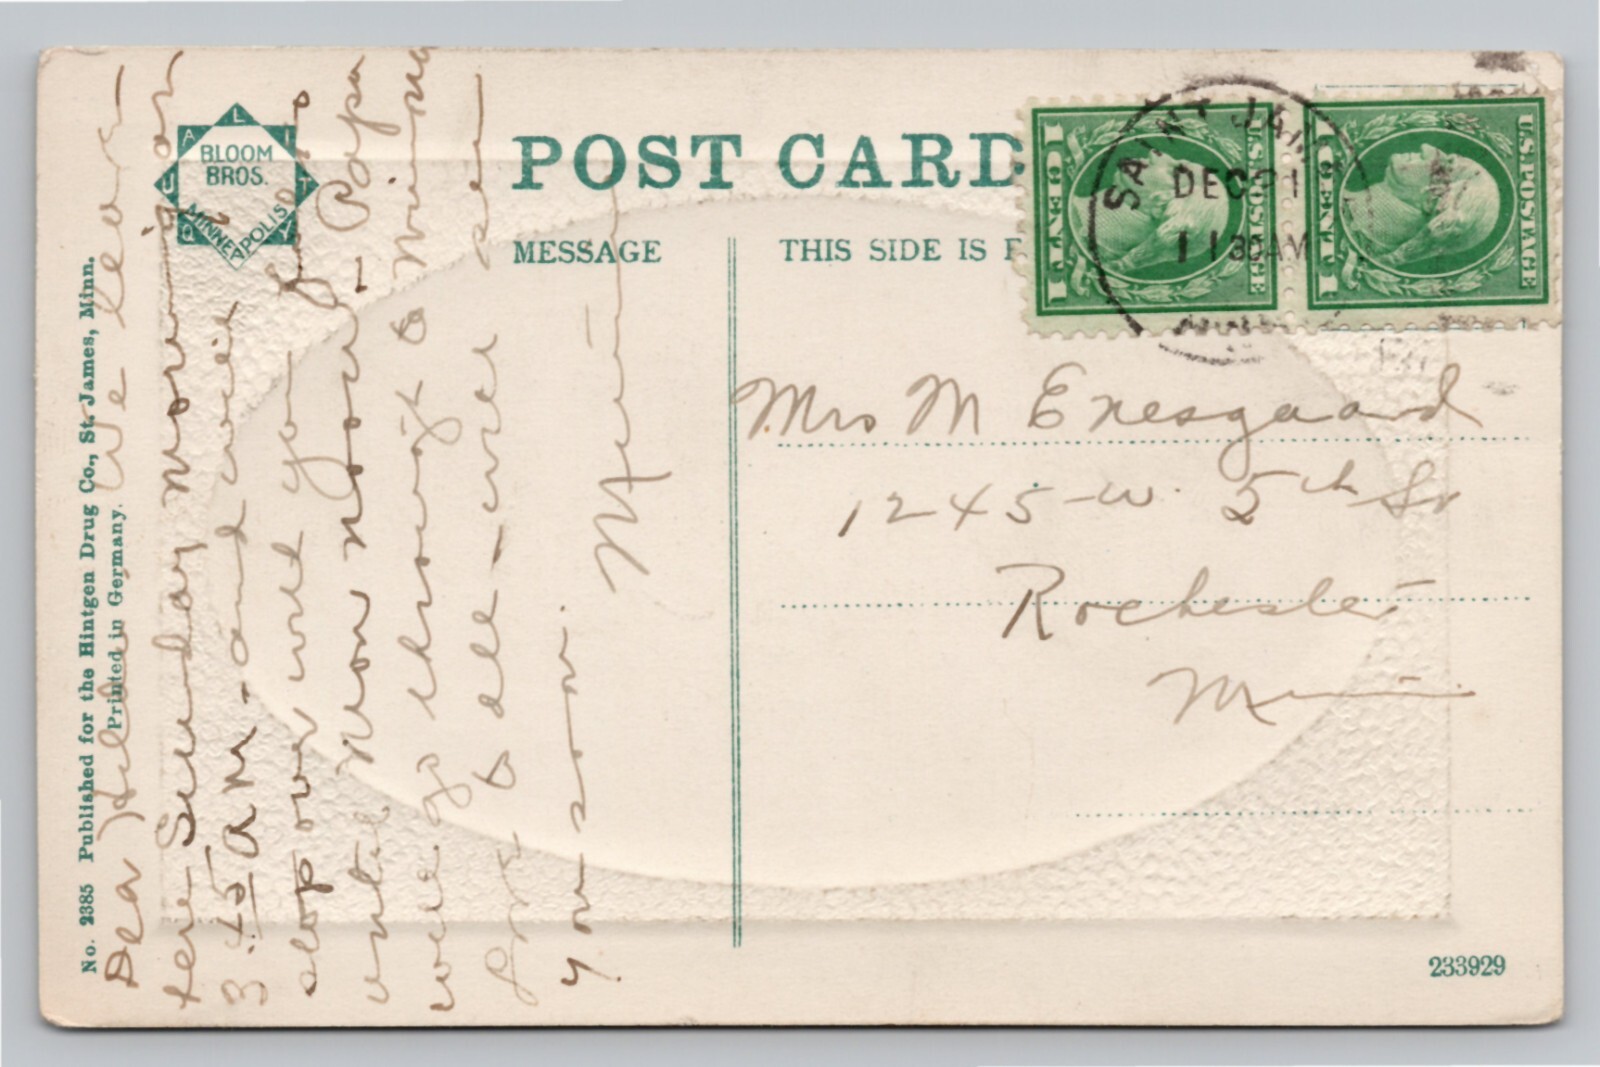 POST CARD
MESSAGE
THIS SIDE IS F
QUALITY
BLOOM
BROS.
MINNEAPOLIS
No. 2385 Published for the Hintgen Drug Co., St. James, Minn.
Printed in Germany.
Dear Hilda We leave
here Sunday morning on
3.45 AM - and will
stop over with you folks
until Mon noon - Papa
will go through to Winona
from to all - will see
you soon.
Minnie
U.S. POSTAGE
1 CENT 1
U.S. POSTAGE
1 CENT 1
SAINT JAMES
DEC 21
11 30 AM
MINN
Mrs M Enesgaard
1245 - W. 5th St
Rochester
Minn
233929